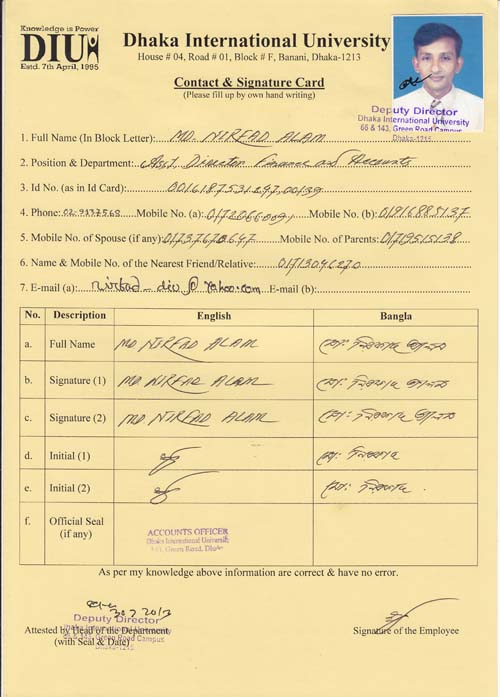 Knowledge is Power
DIU
Estd. 7th April, 1995
Dhaka International University
House # 04, Road # 01, Block # F, Banani, Dhaka-1213
Contact & Signature Card
(Please fill up by own hand writing)
Deputy Director
Dhaka International University
66 & 143, Green Road Campus
Dhaka-1215
1. Full Name (In Block Letter): MD. NIRFAD ALAM
2. Position & Department: Asst. Director Finance and Accounts
3. Id No. (as in Id Card):
4. Phone: Mobile No. (a): Mobile No. (b): 01916885137
5. Mobile No. of Spouse (if any): Mobile No. of Parents:
6. Name & Mobile No. of the Nearest Friend/Relative:
7. E-mail (a): E-mail (b):
No. Description English Bangla
a. Full Name MD NIRFAD ALAM মো: নিরফাদ আলম
b. Signature (1) MD NIRFAD ALAM মো: নিরফাদ আলম
c. Signature (2) MD NIRFAD ALAM মো: নিরফাদ আলম
d. Initial (1) মো: নিরফাদ
e. Initial (2) মো: নিরফাদ
f. Official Seal
(if any)
ACCOUNTS OFFICER
Dhaka International University
Green Road, Dhaka
As per my knowledge above information are correct & have no error.
Deputy Director
Dhaka International University
Attested by Head of the Department
66 & 143, Green Road Campus
(with Seal & Date)
Dhaka-1215
Signature of the Employee